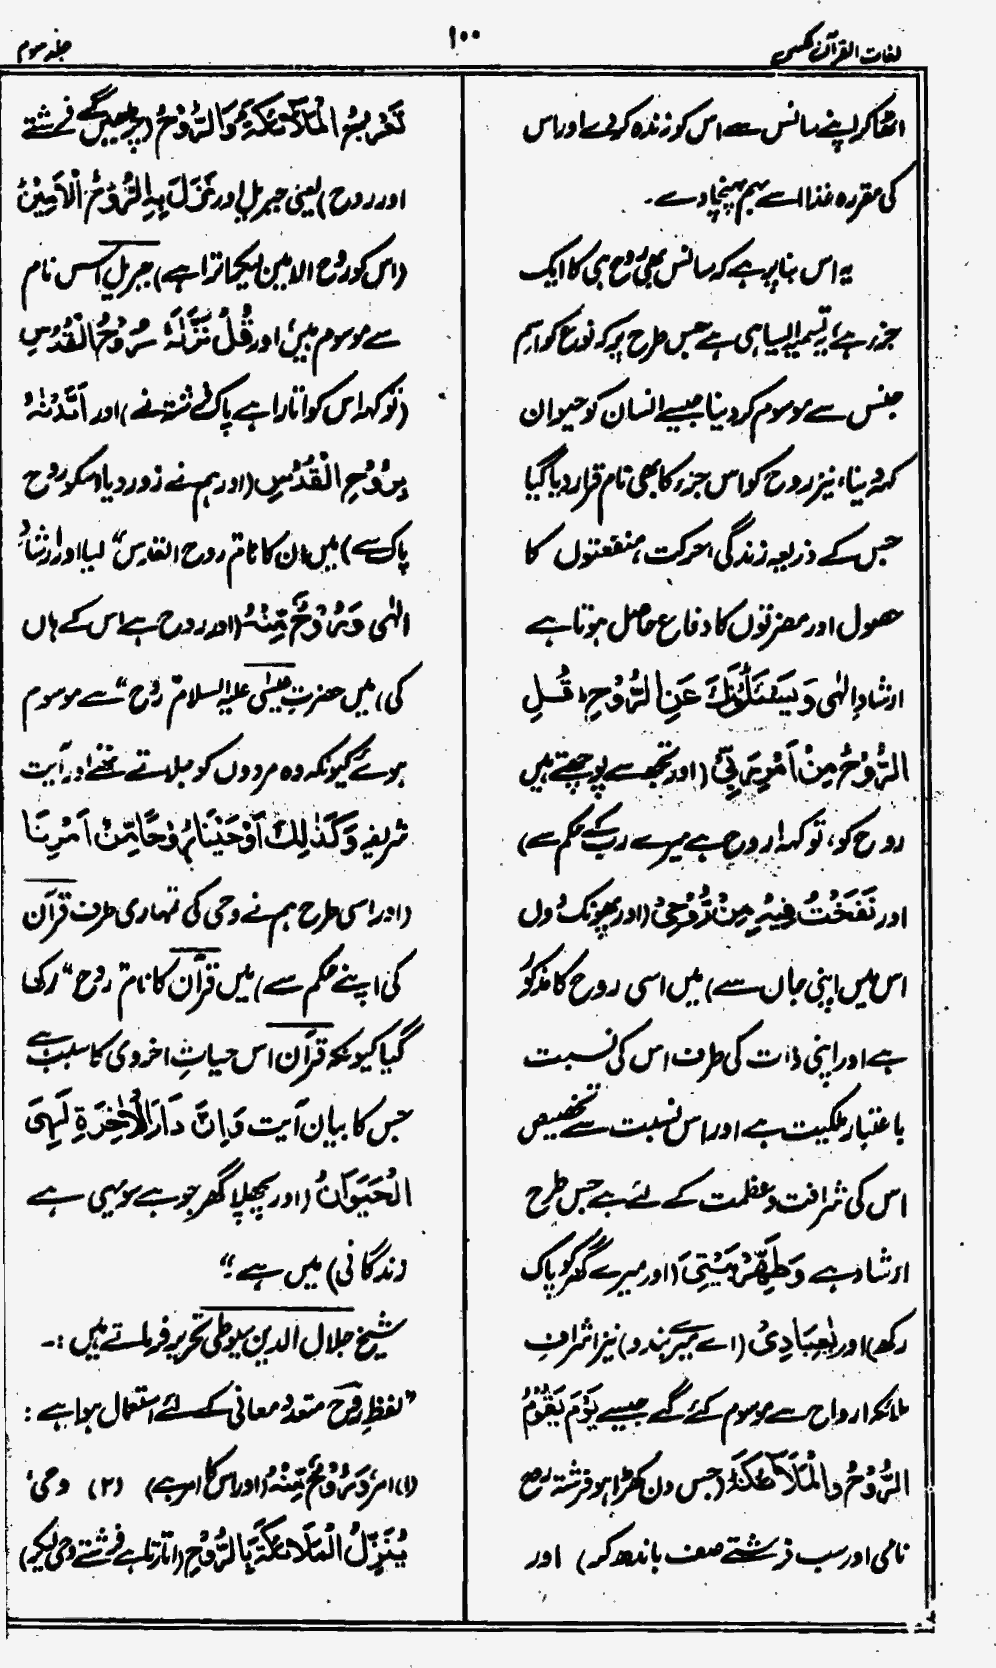 لغات القرآن مکمل
۱۰۰
جلد سوم
اٹھا کر اپنے سانس سے اس کو زندہ کر دے اور اس
کی مقررہ غذا اسے بہم پہنچا دے۔
یہ اس بنا پر ہے کہ سانس بھی روح ہی کا ایک
جزء ہے، یہ تسمیہ ایسا ہی ہے جس طرح پر کہ نوع کو اسم
جنس سے موسوم کر دینا جیسے انسان کو حیوان
کہہ دینا، نیز روح کو اس جزء کا بھی نام قرار دیا گیا
جس کے ذریعہ زندگی، حرکت، منفعتوں کا
حصول اور مضرتوں کا دفاع حاصل ہوتا ہے
ارشادِ الٰہی وَيَسْئَلُوْنَكَ عَنِ الرُّوْحِ، قُلِ
الرُّوْحُ مِنْ اَمْرِ رَبِّيْ (اور تجھ سے پوچھتے ہیں
روح کو، تو کہہ! روح ہے میرے رب کے حکم سے)
اور نَفَخْتُ فِيْهِ مِنْ رُّوْحِيْ (اور پھونک دوں
اس میں اپنی جان سے) میں اسی روح کا مذکور
ہے اور اپنی ذات کی طرف اس کی نسبت
باعتبار ملکیت ہے اور اس نسبت سے تخصیص
اس کی شرافت و عظمت کے لئے ہے جس طرح
ارشاد ہے وَطَهِّرْ بَيْتِيَ (اور میرے گھر کو پاک
رکھ) اور يٰعِبَادِيْ (اے میرے بندو) نیز اشراف
ملائکہ ارواح سے موسوم کئے گئے جیسے يَوْمَ يَقُوْمُ
الرُّوْحُ وَالْمَلٰٓئِكَةُ (جس دن کھڑا ہو فرشتہ روح
نامی اور سب فرشتے صف باندھ کر) اور
تَعْرُجُ الْمَلٰٓئِكَةُ وَالرُّوْحُ (چڑھیں گے فرشتے
اور روح) یعنی جبریل اور نَزَلَ بِهِ الرُّوْحُ الْاَمِيْنُ
(اس کو روح الامین لیکر اترا ہے) جبریل اس نام
سے موسوم ہیں، اور قُلْ نَزَّلَهٗ رُوْحُ الْقُدُسِ
(تو کہہ اس کو اتارا ہے پاک فرشتہ نے) اور اَيَّدْنٰهُ
بِرُوْحِ الْقُدُسِ (اور ہم نے زور دیا اسکو روح
پاک سے) میں ان کا نام "روح القدس" لیا اور ارشاد
الٰہی وَرُوْحٌ مِّنْهُ (اور روح ہے اس کے ہاں
کی) میں حضرت عیسٰی علیہ السلام "روح" سے موسوم
ہوئے کیونکہ وہ مردوں کو جلاتے تھے اور آیت
شریفہ وَكَذٰلِكَ اَوْحَيْنَا رُوْحًا مِّنْ اَمْرِنَا
(اور اسی طرح ہم نے وحی کی تمہاری طرف قرآن
کی اپنے حکم سے) میں قرآن کا نام "روح" رکھا
گیا کیونکہ قرآن اس حیاتِ اخروی کا سبب ہے
جس کا بیان آیت وَاِنَّ دَارَ الْاٰخِرَةِ لَهِيَ
الْحَيَوَانُ (اور پچھلا گھر جو ہے سو یہی ہے
زندگانی) میں ہے۔"
شیخ جلال الدین سیوطی تحریر فرماتے ہیں :۔
"لفظِ روح متعدد معانی کے لئے استعمال ہوا ہے :
(۱) امر، وَرُوْحٌ مِّنْهُ (اور اس کا امر ہے) (۲) وحی،
يُنَزِّلُ الْمَلٰٓئِكَةَ بِالرُّوْحِ (اتارتا ہے فرشتے وحی لیکر)